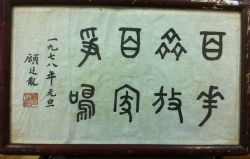 百花
齊放
百家
爭鳴
一九七八年元旦
顧廷龍